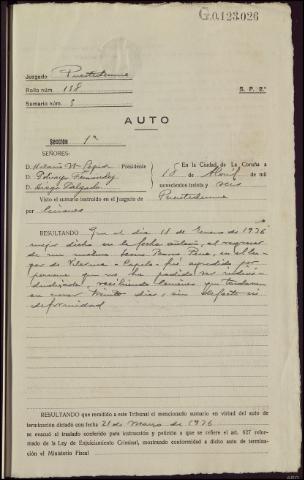 G.0.123.026
Juzgado Puentedeume
Rollo núm. 138
Sumario núm. 3
S. P. 2ª
AUTO
Sección 1ª
SEÑORES:
D. Presidente
D. Fernandez
D. Diego Salgado
En la Ciudad de La Coruña a
18 de Abril de mil
novecientos treinta y seis
Visto el sumario instruido en el juzgado de Puentedeume
por lesiones
RESULTANDO Que el dia 18 de Enero de 1936
mejor dicho en la fecha al regresar
de un molino Pena, en el lu-
gar de Vilarino - Capela - fué agredido por
persona que no ha podido ser indivi-
dualizada, recibiendo lesiones que tardaron
en curar treinta dias, sin defecto ni
deformidad
RESULTANDO que remitido a este Tribunal el mencionado sumario en virtud del auto de
terminación dictado con fecha 21 de Marzo de 1936
se evacuó el traslado conferido para instrucción y petición a que se refiere el art. 627 refor-
mado de la Ley de Enjuiciamiento Criminal, mostrando conformidad a dicho auto de termina-
ción el Ministerio Fiscal